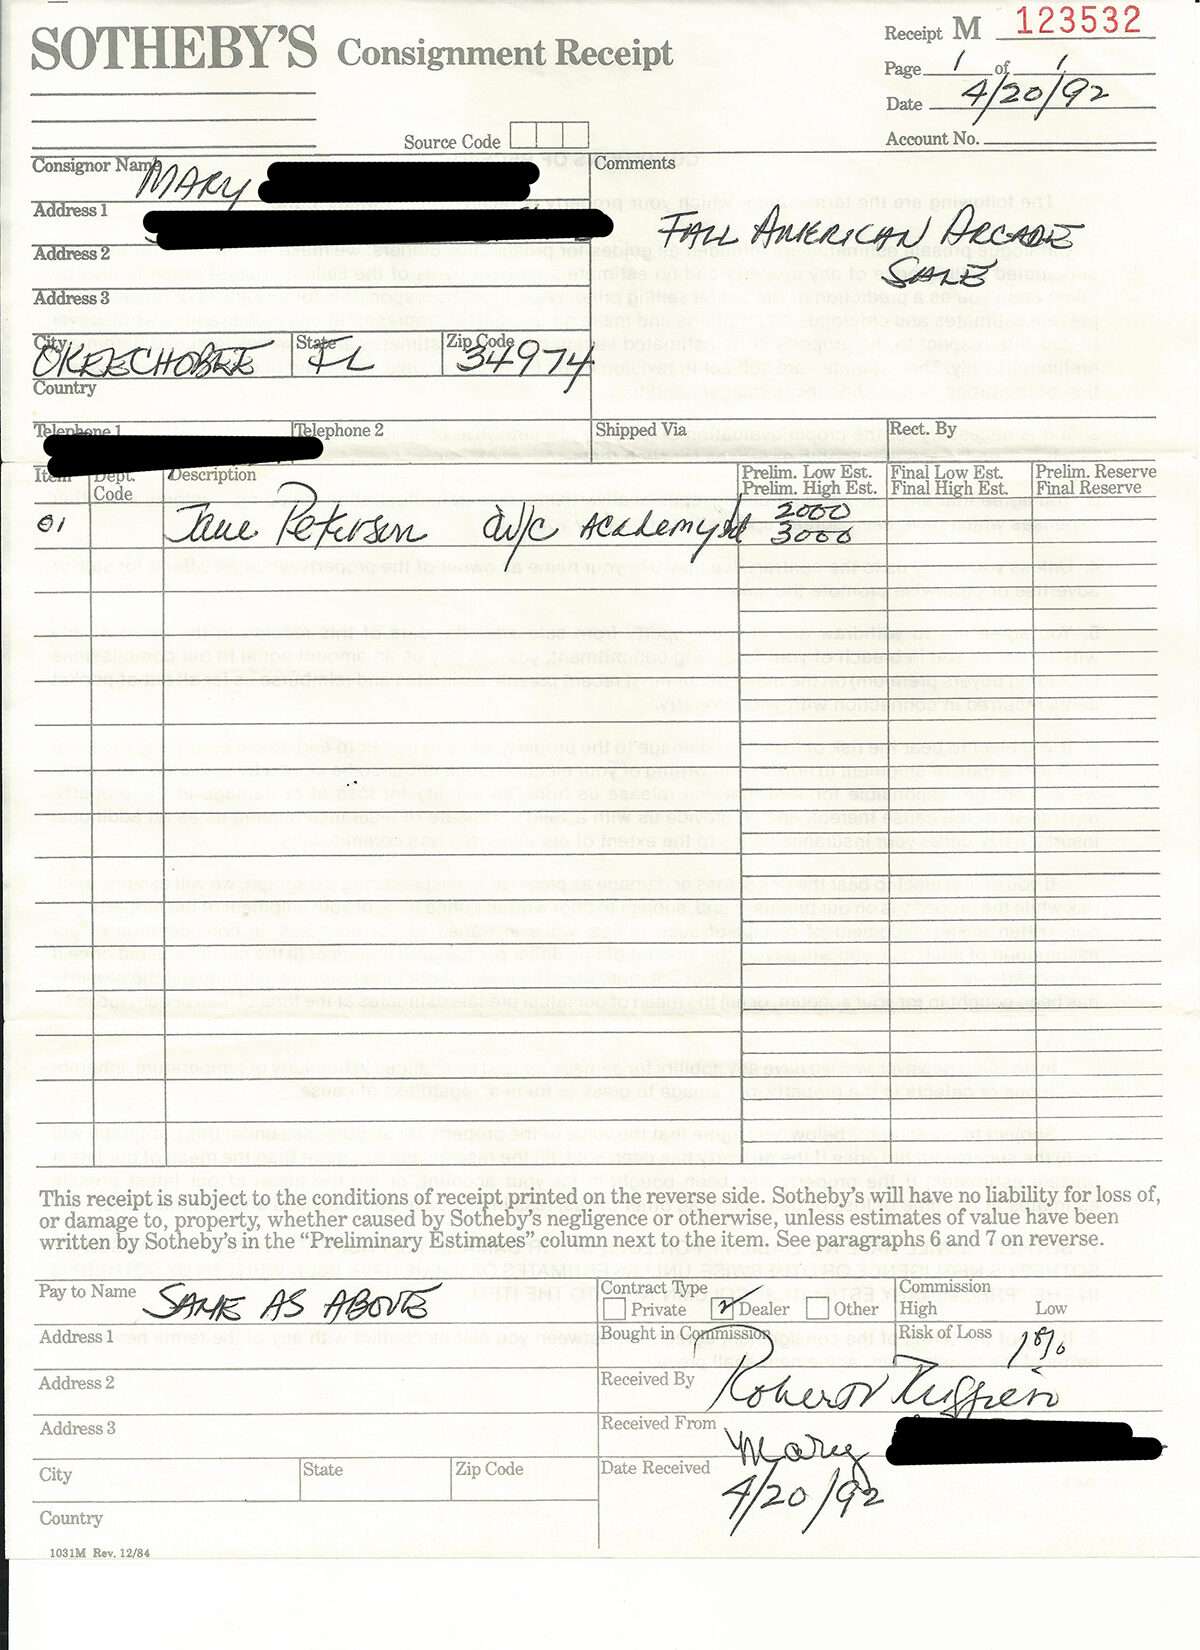 SOTHEBY'S Consignment Receipt
Receipt M 123532
Page 1 of 1
Date 4/20/92
Account No.
Source Code
Consignor Name MARY
Address 1
Address 2
Address 3
City OKEECHOBEE State FL Zip Code 34974
Country
Telephone 1 Telephone 2
Comments
FALL AMERICAN ARCADE
SALE
Shipped Via Rect. By
Item Dept. Code Description Prelim. Low Est. Prelim. High Est. Final Low Est. Final High Est. Prelim. Reserve Final Reserve
01 Jane Peterson academy 2000
3000
This receipt is subject to the conditions of receipt printed on the reverse side. Sotheby's will have no liability for loss of,
or damage to, property, whether caused by Sotheby's negligence or otherwise, unless estimates of value have been
written by Sotheby's in the "Preliminary Estimates" column next to the item. See paragraphs 6 and 7 on reverse.
Pay to Name SAME AS ABOVE
Address 1
Address 2
Address 3
City State Zip Code
Country
Contract Type
Private Dealer Other
Commission
High Low
Bought in Commission
Risk of Loss 1%
Received By Robert
Received From Mary
Date Received 4/20/92
1031M Rev. 12/84